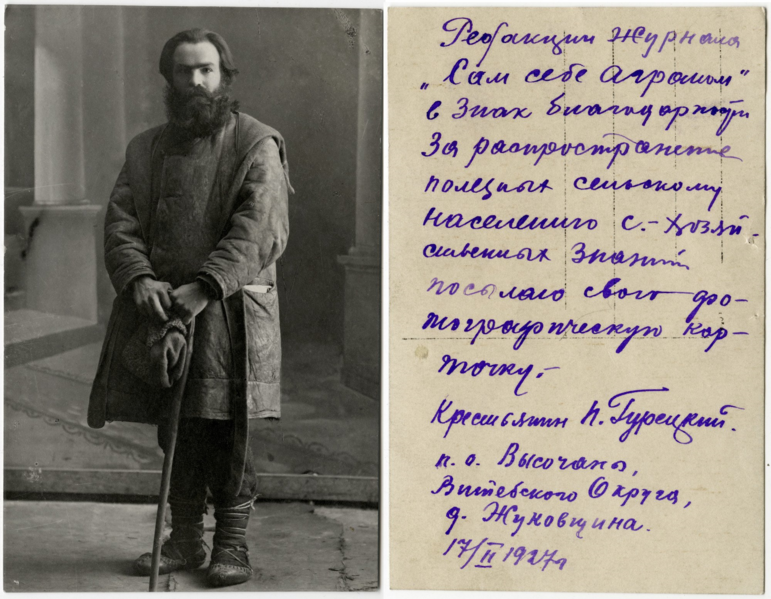 Редакции Журнала
„Сам себе Агроном"
в Знак благодарности
За распространение
полезных сельскому
населению с.-хозяй-
ственных Знаний
посылаю свою фо-
тографическую кар-
точку.-
Крестьянин П. Гурецкий.
п. о. Высочаны,
Витебского Округа,
д. Жуковщина.
17/II 1927г